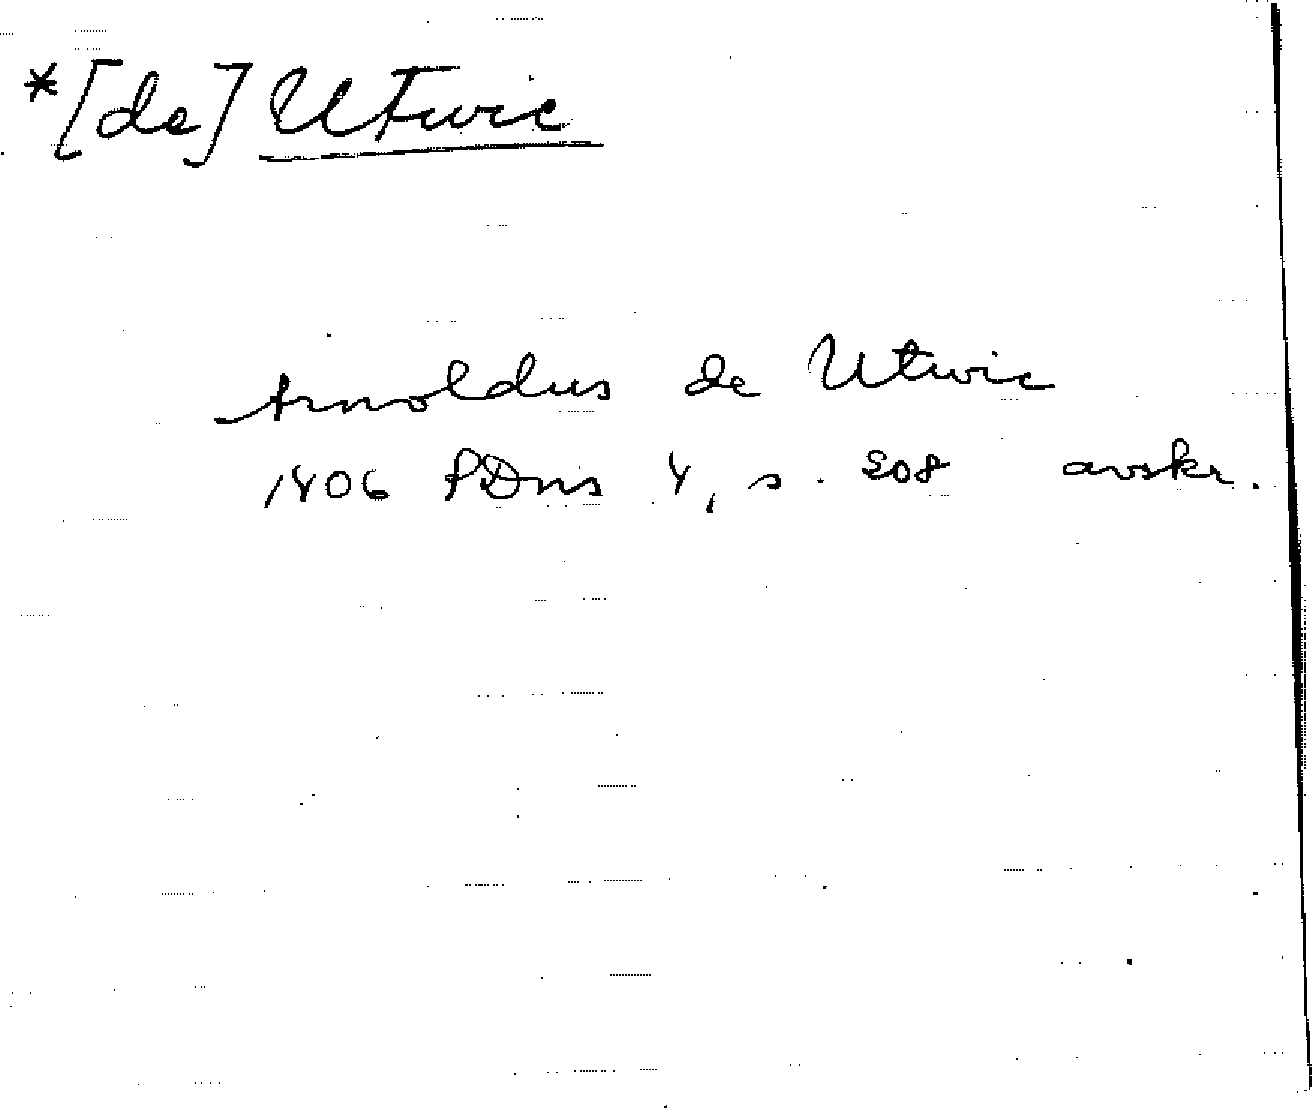 *[de] Utwic
Arnoldus de Utwic
1406 SDns 4, s. 208 avskr.